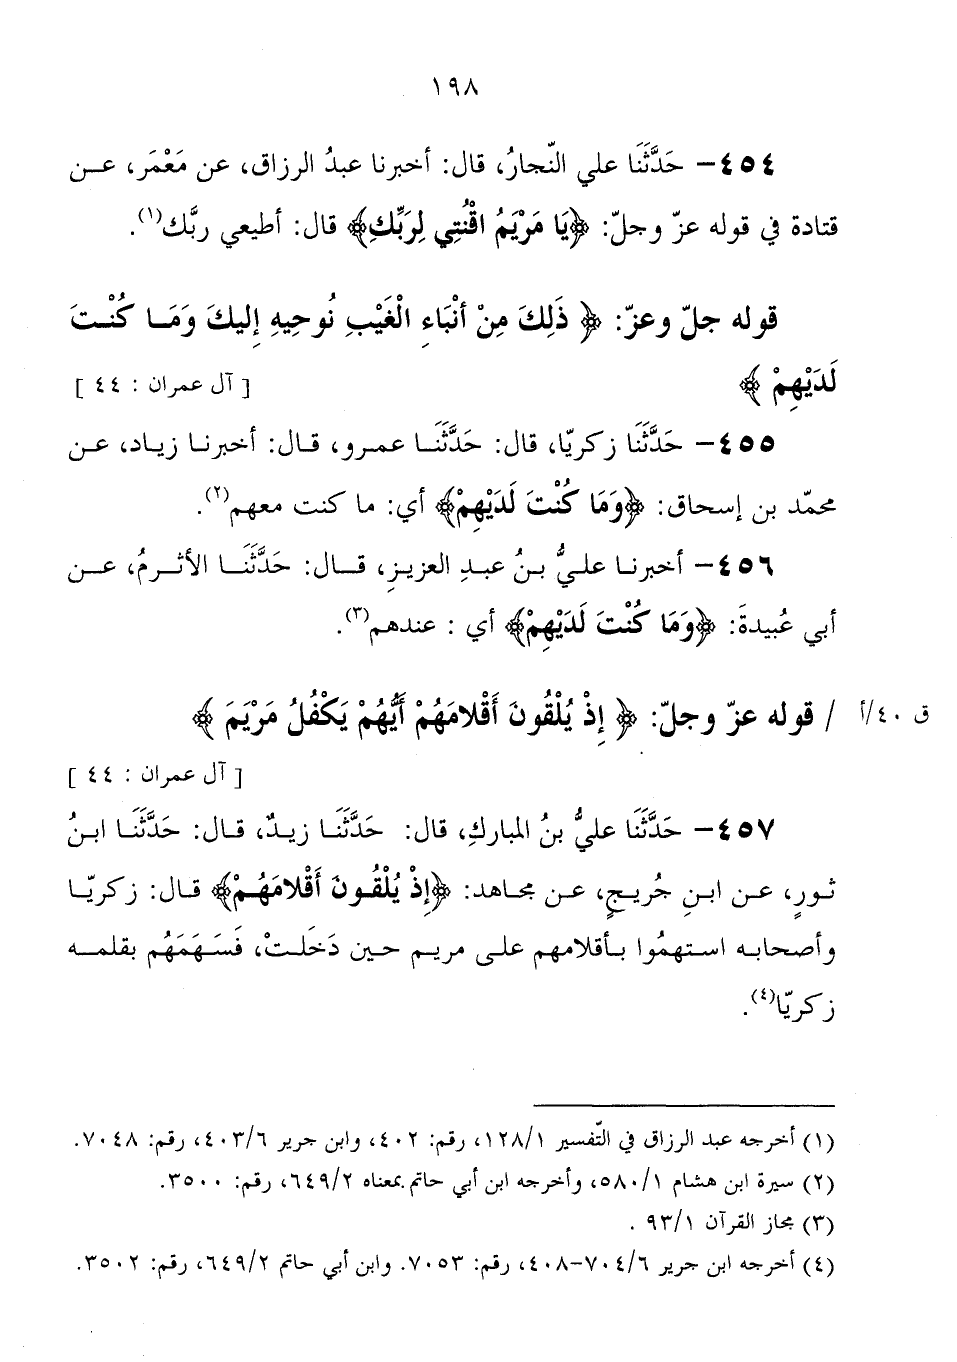 ١٩٨
٤٥٤– حَدَّثَنَا علي النّجارُ، قال: أخبرنا عبدُ الرزاق، عن مَعْمَر، عــن
قتادة في قوله عزّ وجلّ: ﴿يَا مَرْيَمُ اقْنُتِي لِرَبِّكِ﴾ قال: أطيعي ربَّك(١).
قوله جلّ وعزّ: ﴿ ذَلِكَ مِنْ أَنْبَاءِ الْغَيْبِ نُوحِيهِ إِليكَ وَمَــا كُنْــتَ
لَدَيْهِمْ ﴾ [ آل عمران : ٤٤ ]
٤٥٥– حَدَّثَنَا زكريّا، قال: حَدَّثَنَــا عمــرو، قــال: أخبرنــا زيــاد، عــن
محمّد بن إسحاق: ﴿وَمَا كُنْتَ لَدَيْهِمْ﴾ أي: ما كنت معهم(٢).
٤٥٦– أخبرنــا علــيُّ بــنُ عبــدِ العزيــزِ، قــال: حَدَّثَنَــا الأثــرمُ، عــن
أبي عُبيدةَ: ﴿وَمَا كُنْتَ لَدَيْهِمْ﴾ أي : عندهم(٣).
ق ٤٠/أ / قوله عزّ وجلّ: ﴿ إِذْ يُلْقُونَ أَقْلامَهُمْ أَيُّهُمْ يَكْفُلُ مَرْيَمَ ﴾
[ آل عمران : ٤٤ ]
٤٥٧– حَدَّثَنَا عليُّ بنُ المباركِ، قال: حَدَّثَنَــا زيــدٌ، قــال: حَدَّثَنَــا ابــنُ
ثــورٍ، عــن ابــنِ جُريــجٍ، عــن مجاهد: ﴿إِذْ يُلْقُــونَ أَقْلامَهُــمْ﴾ قــال: زكريّــا
وأصحابــه استهمُوا بــأقلامهم علــى مريــم حــين دَخَلــتْ، فَسَــهَمَهُم بقلمــه
زكريّا(٤).
(١) أخرجه عبد الرزاق في التّفسير ١٢٨/١، رقم: ٤٠٢، وابن جرير ٤٠٣/٦، رقم: ٧٠٤٨.
(٢) سيرة ابن هشام ٥٨٠/١، وأخرجه ابن أبي حاتم بمعناه ٦٤٩/٢، رقم: ٣٥٠٠.
(٣) مجاز القرآن ٩٣/١ .
(٤) أخرجه ابن جرير ٧٠٤/٦–٤٠٨، رقم: ٧٠٥٣. وابن أبي حاتم ٦٤٩/٢، رقم: ٣٥٠٢.